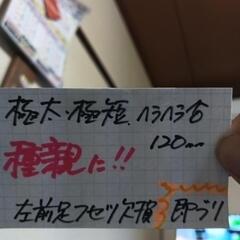 極太・極短、ハラハラ「
120mm
種親に!!
左前足フセツ欠損 即ブリ